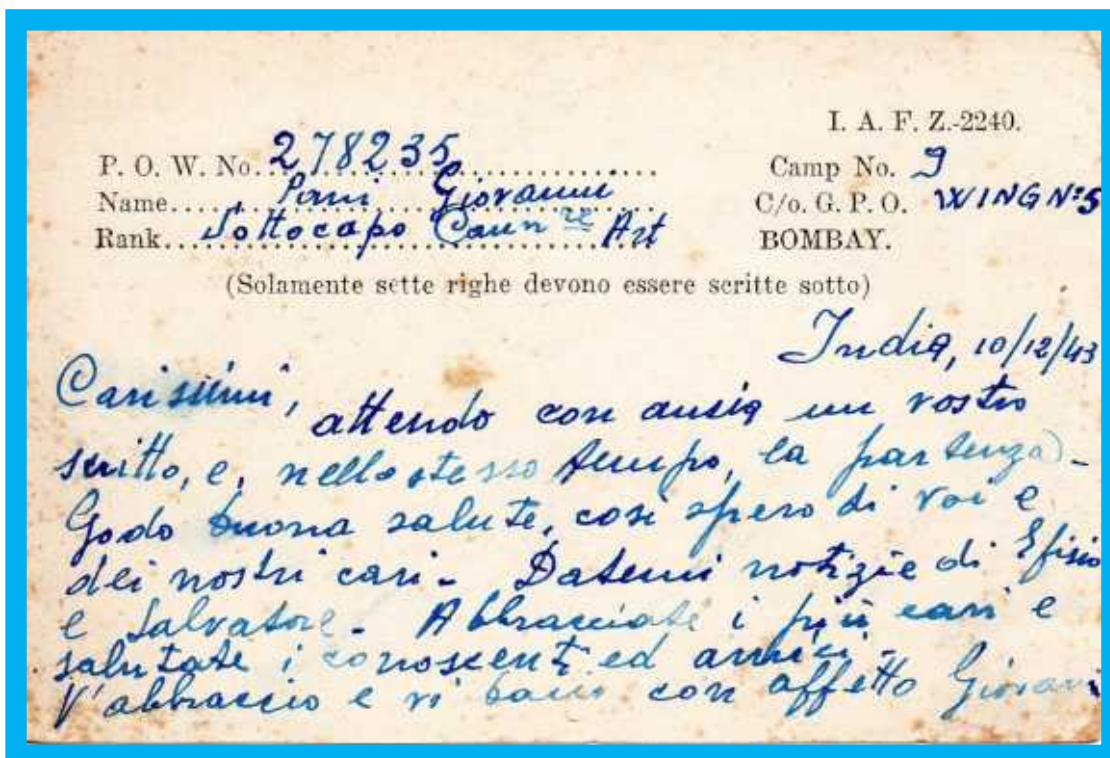 I. A. F. Z.-2240.
P. O. W. No. 278235
Camp No. 9
Name Giovanni
C/o. G. P. O. WING Nº5
Rank Sottocapo Cann re Art
BOMBAY.
(Solamente sette righe devono essere scritte sotto)
India, 10/12/43
Carissimi, attendo con ansia un vostro
scritto, e, nello stesso tempo, la partenza -
Godo buona salute, così spero di voi e
dei nostri cari - Datemi notizie di Efisio
e Salvatore - Abbracciate i più cari e
salutate i conoscenti ed amici -
V'abbraccio e vi bacio con affetto Giovanni